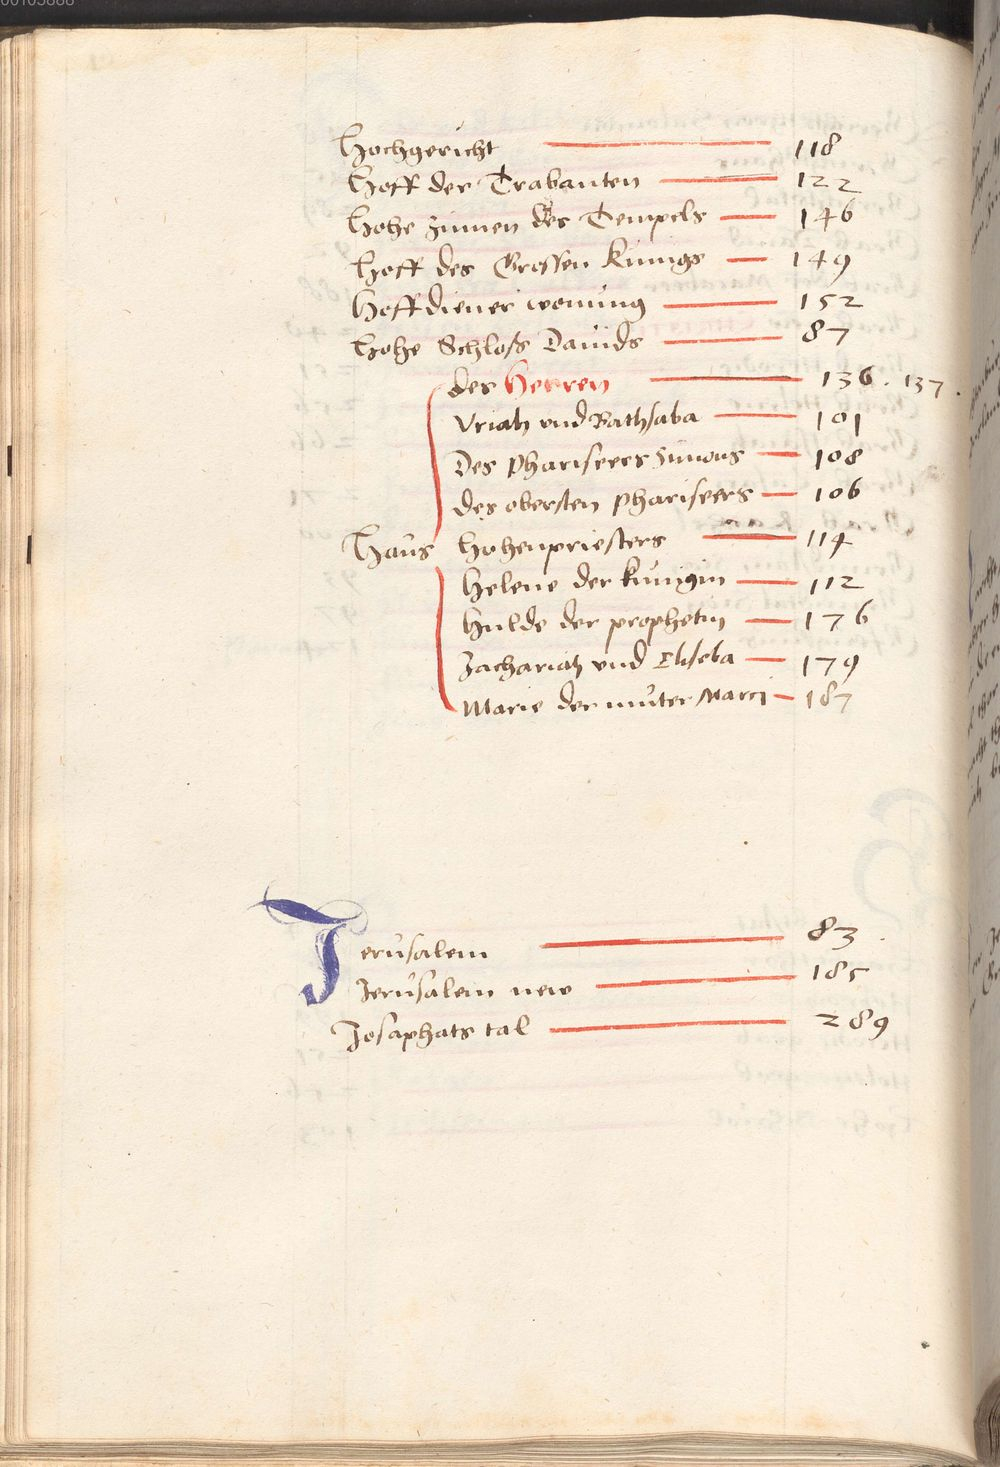 Hochgericht — 118
Hoff der Trabanten — 122
Hohe zinnen des Tempels — 146
Hoff des Grossen Künigs — 149
Hoffdiener wonung — 152
Hohe Schloß Dauids — 87
des Herren — 136 . 137 .
Vriah vnd Bathsaba — 101
Des Phariseers Simons — 108
des obersten Phariseers — 106
Haus Hohenpriesters — 114
Helene der künigin — 112
Hulde der prophetin — 176
Zachariah vnd Eliseba — 179
Marie der muter Marci — 187
Jerusalem — 83 .
Jerusalem new — 185
Josaphats tal — 289